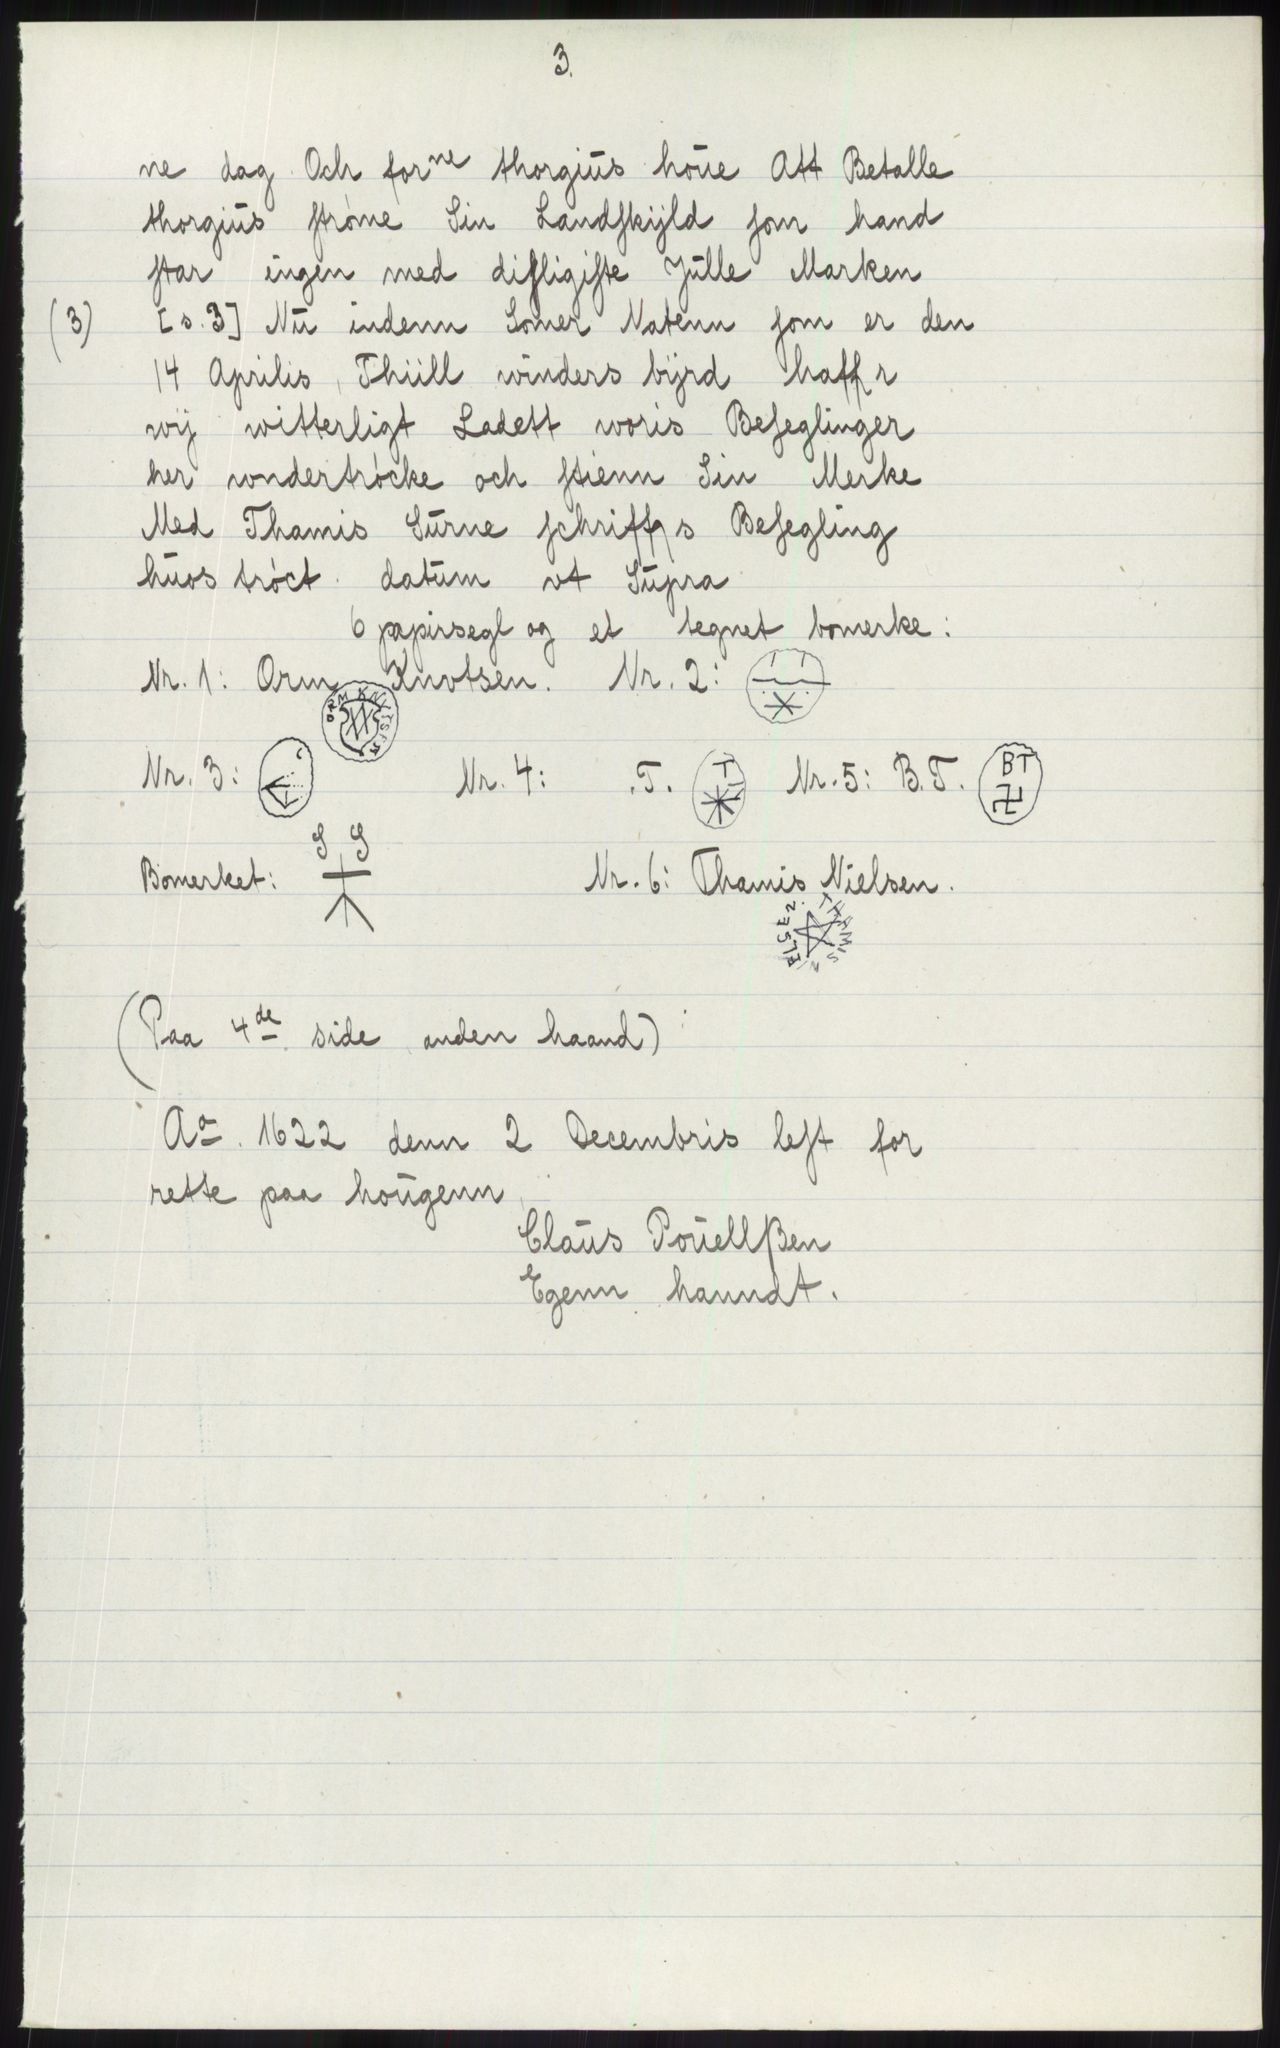 3.
ne dag Och forne thorgiūs hōue Att Betalle
thorgiūs ſtrōme Sin Landſkijld ſom hand
ſtar ingen med diſligiſte Jūlle Marken
(3) [s. 3] Nū indenn Somer Natenn ſom er den
14 Aprilis, Thiill winders bijrd haffr
wij witterligt Ladett woris Beſeglinger
her wndertrócke och ſtienn Sin Merke
Med Thamis Sūrne ſchriffs Beſegling
hūos tróct. datūm vt Sūpra
6 papirsegl og et tegnet bomerke:
Nr. 1: Orm Knvtsen. Nr. 2:
ORM KNVTSEN
Nr. 3: Nr. 4: .T. T Nr. 5: B.T. BT
S S
Bomerket: Nr. 6: Thamis Nielsen.
THAMIS NIELSEN
(Paa 4de side anden haand):
Aº. 1622 denn 2 Decembris leſt for
rette paa hoūgenn
Claūs Poūellßen
Egenn hanndt.